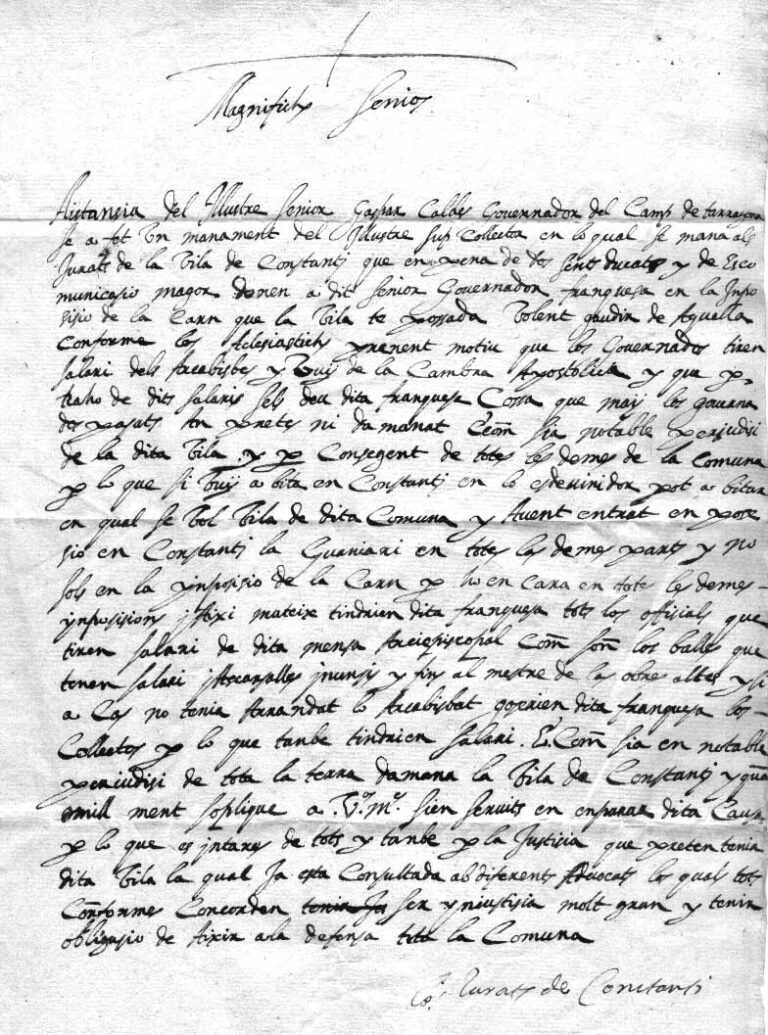 Magnifichs Seniors
Aistansia del Illustre Senior Gaspar Caldes Governador del Camp de tarragona
se a fet Un manament del Illustre sup Collecta en lo qual se mana als
Jurats de la Vila de Constanti que en pena de dos sents ducats y de Esco
municasio magor donen a dit senior Governador franquesa en la Inpo
sisio de la Carn que la Vila te posada Volent gaudir de Aquella
Conforme los Aclesiastichs prenent motiu que los Governados tiren
salari dels Arcabisbes y Vuy de la Cambra Apostolica y que p
Raho de dits salaris sels deu dita franquesa Cossa que may los governa
dos pasats An pretes ni damanat E com sia notable perjudisi
de la dita Vila y p Consegent de totes les demes de la Comuna
p lo que si Vuy abita en Constanti en lo esdevenidor pot abitar
en qual se Vol Vila de dita Comuna y Avent entrat en pose
sio en Constanti la Guaniari en totes les demes parts y no
sols en la ynposisio de la Carn p ho en Cara en totes les demes
ynposisions y Aixi mateix tindrien dita franquesa tots los offisials que
tiren salari de dita mensa Archiepiscopal Com son los balles que
tenen salari y fins al mestre de las obre altes y si
a Cas no tenia Arrandat lo Arcabisbat goserien dita franquesa los
Collectos p lo que tanbe tindrien salari. E Com sia en notable
perjudisi de tota la terra damana la Vila de Constanti y quā
omill ment soplique a V. M. sien servits en enparar dita Causa
p lo que es intares de tots y tanbe p la Justicia que preten tenir
dita Vila la qual Ja esta Consultada ab diferents Advocats los quals tots
Conformes Concorden ser ynjustisia molt gran y tenir
obligasio de Aixir a la defensa tota la Comuna
Jurats de Constanti